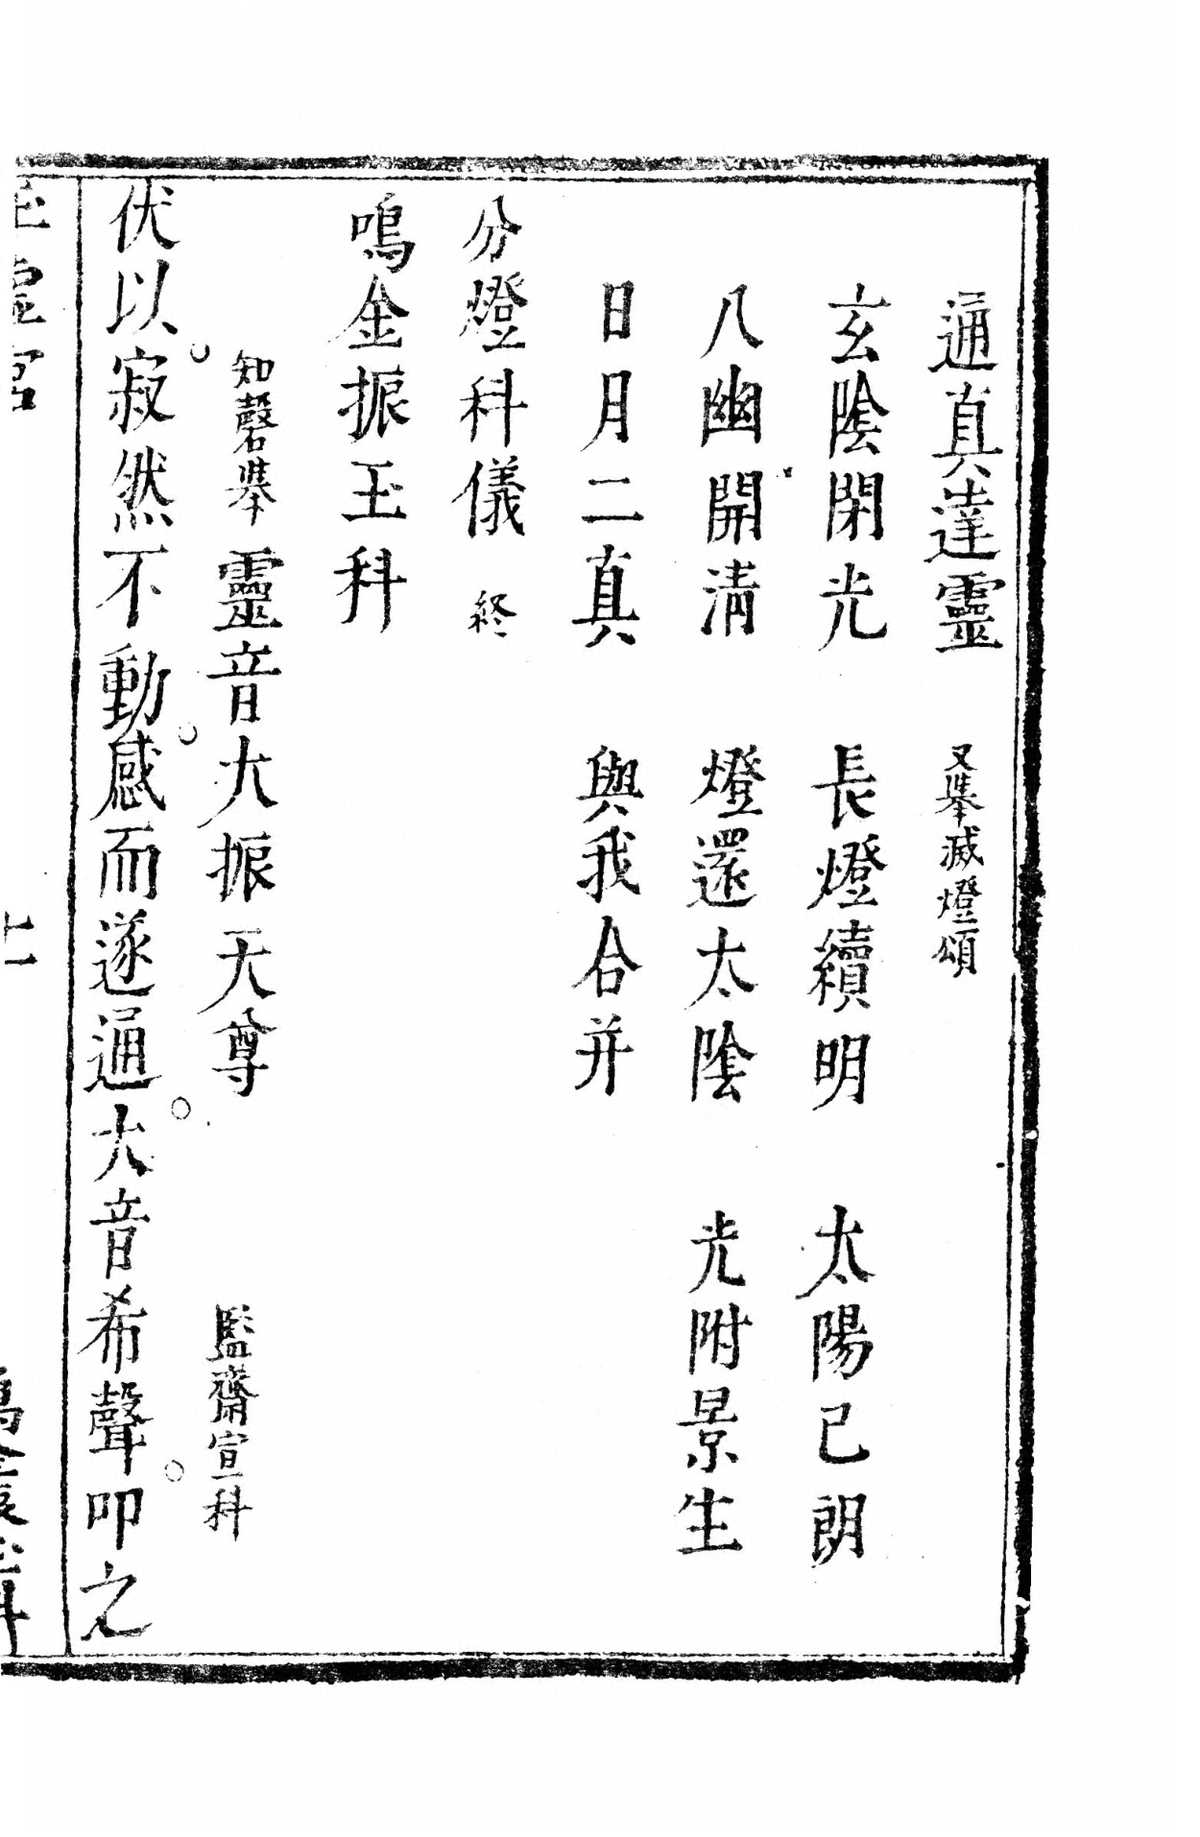 通真達靈　又舉滅燈頌
玄陰閉光　長燈續明　太陽已朗
八幽開清　燈還太陰　光附景生
日月二真　與我合并
分燈科儀　終
鳴金振玉科
知磬舉　靈音大振天尊　監齋宣科
伏以。寂然不動。感而遂通。大音希聲。叩之